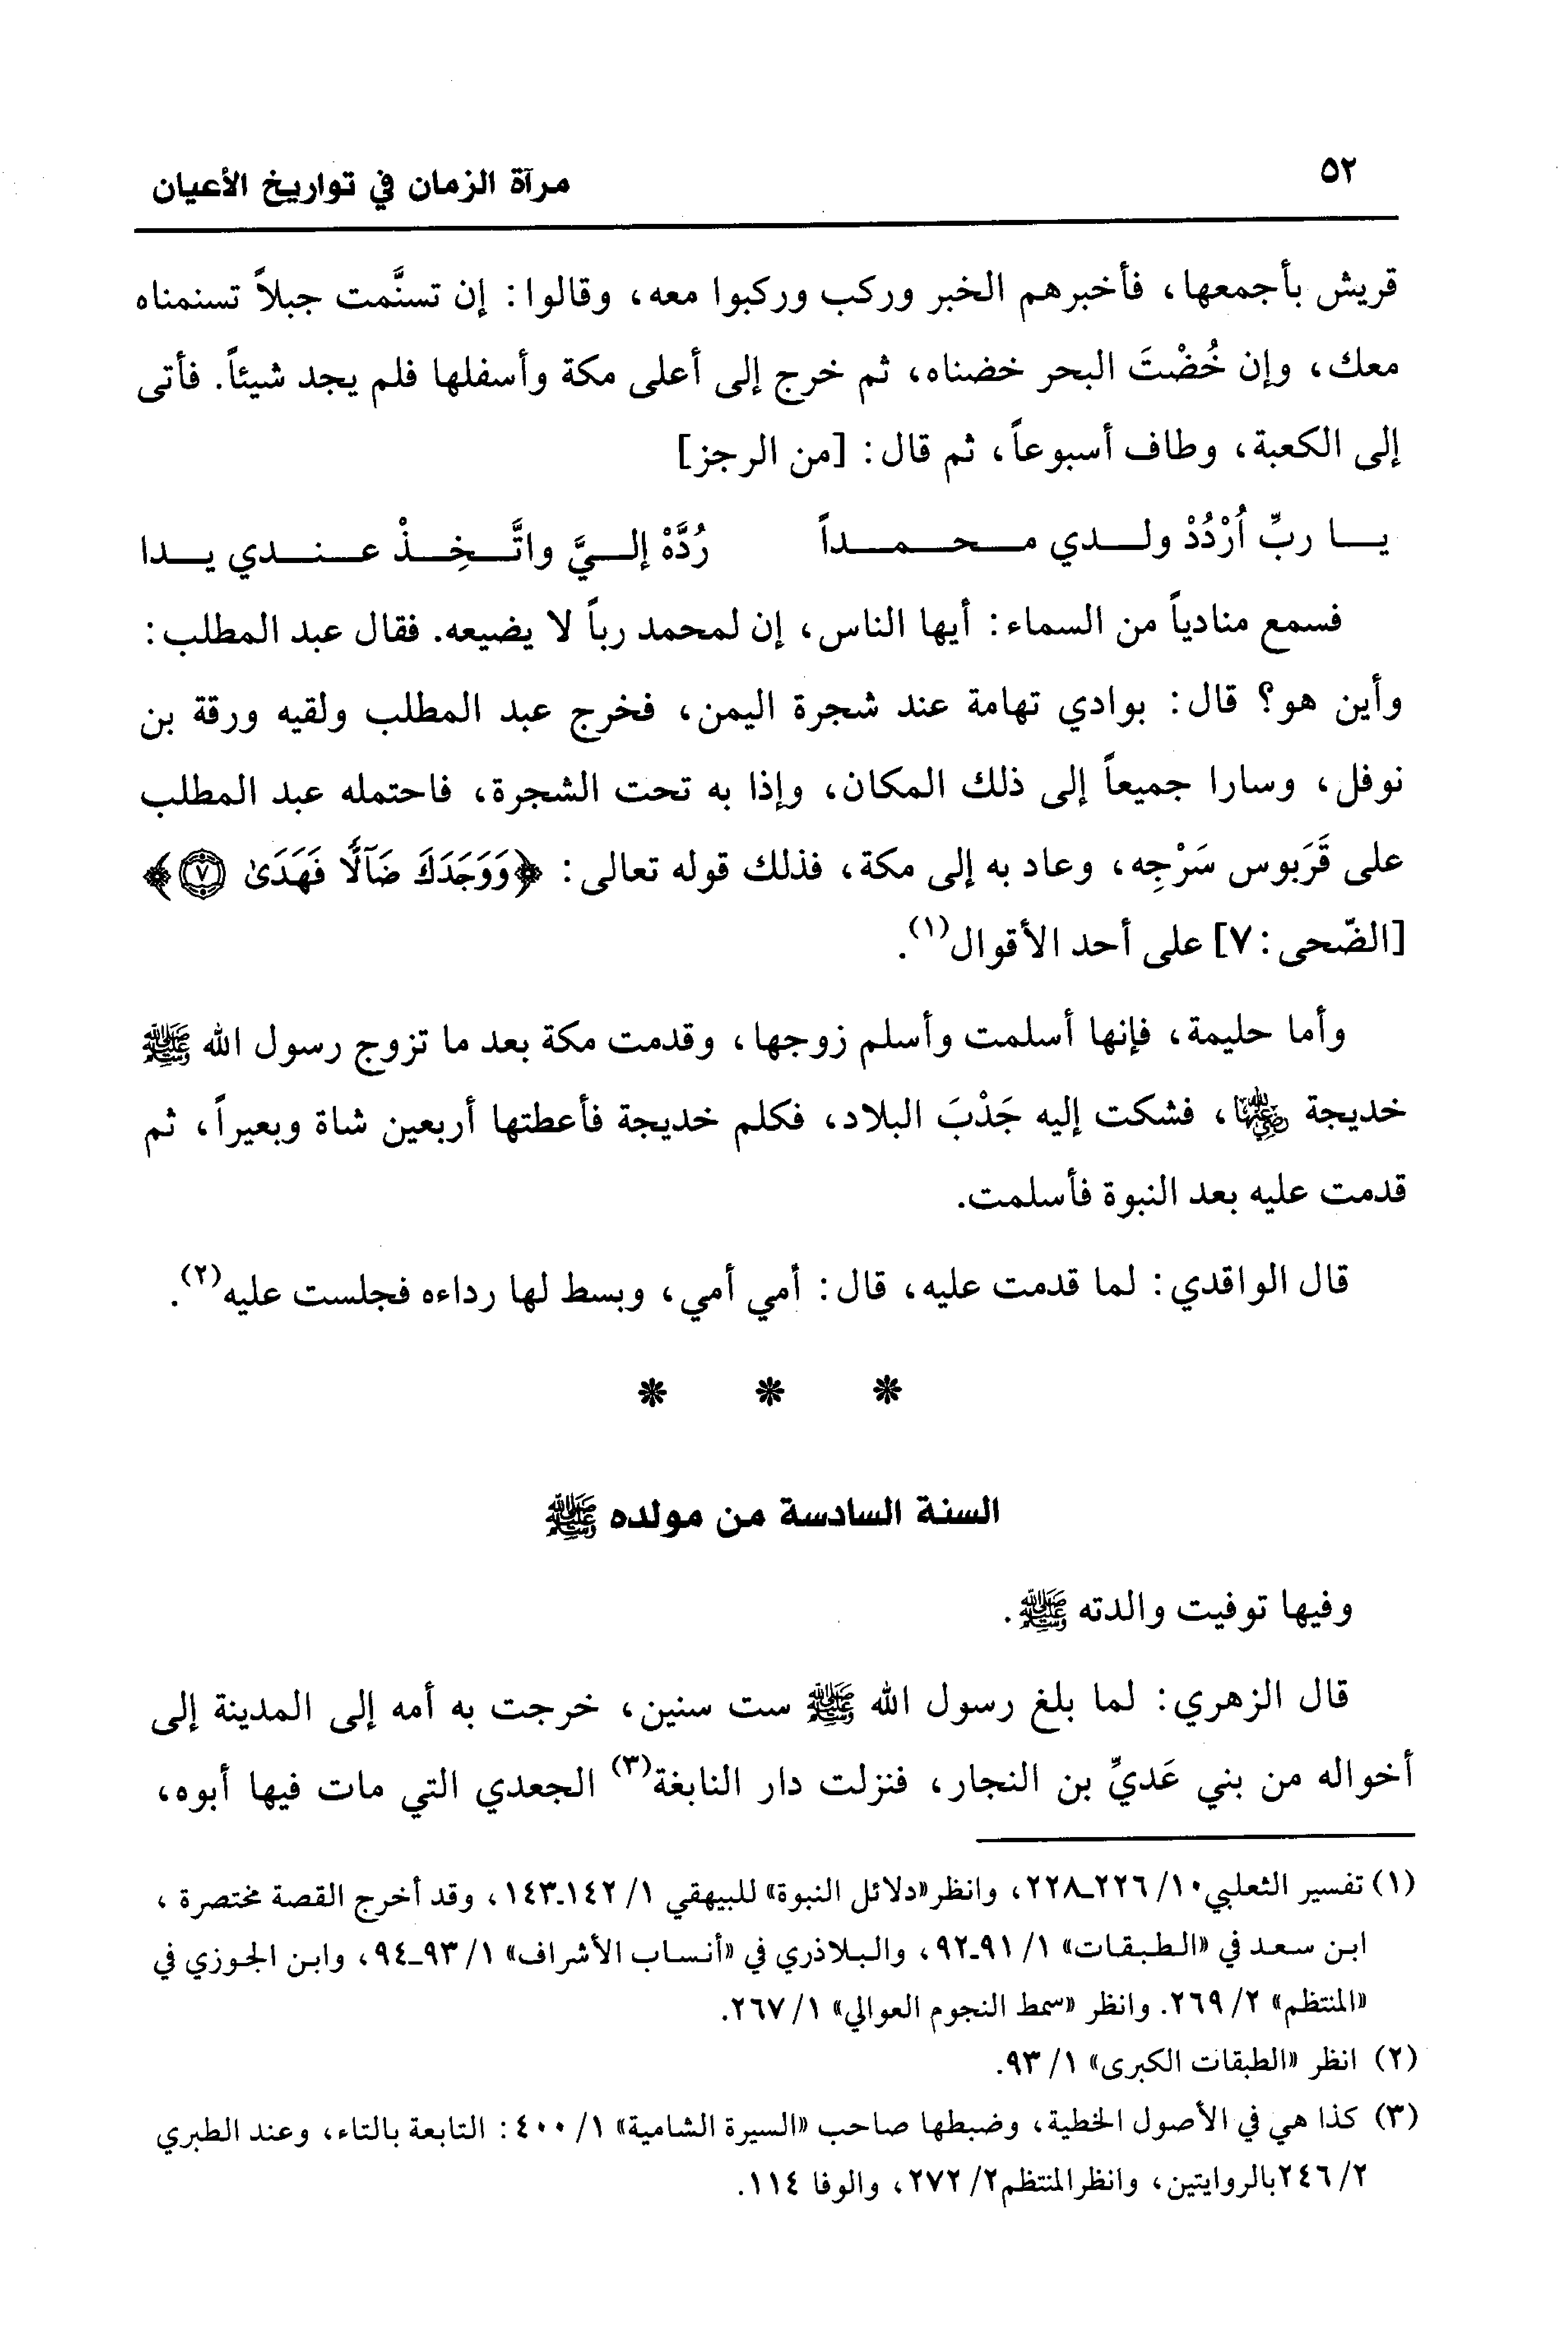 ٥٢
مرآة الزمان في تواريخ الأعيان
قريش بأجمعها، فأخبرهم الخبر وركب وركبوا معه، وقالوا: إن تسنَّمت جبلاً تسنمناه
معك، وإن خُضْتَ البحر خضناه، ثم خرج إلى أعلى مكة وأسفلها فلم يجد شيئاً. فأتى
إلى الكعبة، وطاف أسبوعاً، ثم قال: [من الرجز]
يا ربِّ اُرْدُدْ ولدي محمداً رُدَّهْ إليَّ واتَّخِذْ عندي يدا
فسمع منادياً من السماء: أيها الناس، إن لمحمد رباً لا يضيعه. فقال عبد المطلب:
وأين هو؟ قال: بوادي تهامة عند شجرة اليمن، فخرج عبد المطلب ولقيه ورقة بن
نوفل، وسارا جميعاً إلى ذلك المكان، وإذا به تحت الشجرة، فاحتمله عبد المطلب
على قَرَبوس سَرْجِه، وعاد به إلى مكة، فذلك قوله تعالى: ﴿وَوَجَدَكَ ضَآلًّا فَهَدَىٰ ٧﴾
[الضّحى: ٧] على أحد الأقوال(١).
وأما حليمة، فإنها أسلمت وأسلم زوجها، وقدمت مكة بعد ما تزوج رسول الله ﷺ
خديجة رضي الله عنها، فشكت إليه جَدْبَ البلاد، فكلم خديجة فأعطتها أربعين شاة وبعيراً، ثم
قدمت عليه بعد النبوة فأسلمت.
قال الواقدي: لما قدمت عليه، قال: أمي أمي، وبسط لها رداءه فجلست عليه(٢).
* * *
السنة السادسة من مولده ﷺ
وفيها توفيت والدته ﷺ.
قال الزهري: لما بلغ رسول الله ﷺ ست سنين، خرجت به أمه إلى المدينة إلى
أخواله من بني عَديِّ بن النجار، فنزلت دار النابغة(٣) الجعدي التي مات فيها أبوه،
(١) تفسير الثعلبي١٠/ ٢٢٦ـ٢٢٨، وانظر«دلائل النبوة» للبيهقي ١/ ١٤٢ـ١٤٣، وقد أخرج القصة مختصرة ،
ابن سعد في «الطبقات» ١/ ٩١ـ٩٢، والبلاذري في «أنساب الأشراف» ١/ ٩٣ـ٩٤، وابن الجوزي في
«المنتظم» ٢/ ٢٦٩. وانظر «سمط النجوم العوالي» ١/ ٢٦٧.
(٢) انظر «الطبقات الكبرى» ١/ ٩٣.
(٣) كذا هي في الأصول الخطية، وضبطها صاحب «السيرة الشامية» ١/ ٤٠٠: التابعة بالتاء، وعند الطبري
٢/ ٢٤٦بالروايتين، وانظرالمنتظم٢/ ٢٧٢، والوفا ١١٤.